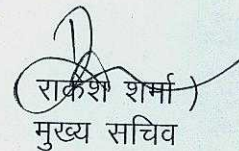 (राकेश शर्मा )
मुख्य सचिव